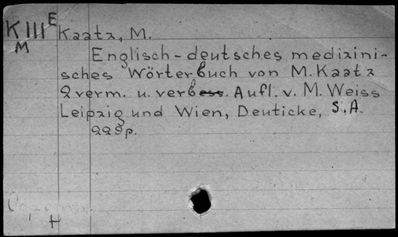 K III E Kaatz, M.
M
Englisch-deutsches medizini-
sches Wörterbuch von M. Kaatz
2 verm. u. verbess. Aufl. v. M. Weiss
Leipzig und Wien, Deuticke, S.A.
228 p.
H